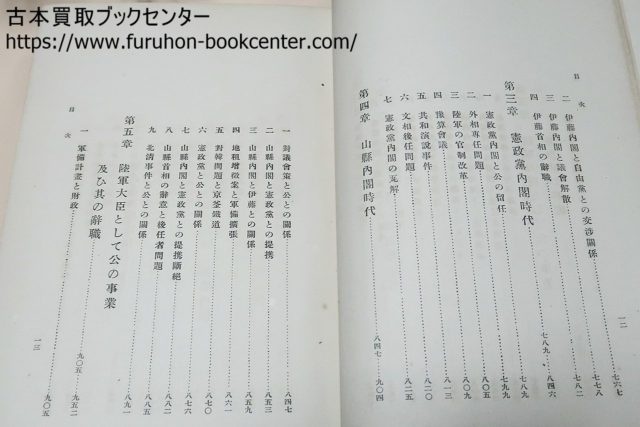 古本買取ブックセンター
https://www.furuhon-bookcenter.com/
目次
一二
二 伊藤內閣と自由黨との交渉關係 七六七
三 伊藤內閣と議會解散 七七八
四 伊藤首相の辭職 七八二
第三章 憲政黨內閣時代 七八九 八四六
一 憲政黨內閣と公の留任 七八九
二 外相專任問題 七九九
三 陸軍の官制改革 八〇五
四 豫算會議 八一三
五 共和演說事件 八二〇
六 文相後任問題 八二五
七 憲政黨內閣の瓦解
第四章 山縣內閣時代 八四七 九〇四
一 對議會策と公との關係 八四七
二 山縣內閣と憲政黨との提携 八五三
三 山縣內閣と伊藤との關係 八五九
四 地租增徵案と軍備擴張 八六一
五 對韓問題と京釜鐵道 八七〇
六 憲政黨と公との關係 八七六
七 山縣內閣と憲政黨との提携斷絕 八八二
八 山縣首相の辭意と後任者問題 八八五
九 北淸事件と公との關係 八九一
第五章 陸軍大臣として公の事業
及ひ其の辭職 九〇五 九五二
一 軍備計畫と財政 九〇五
目次
一三